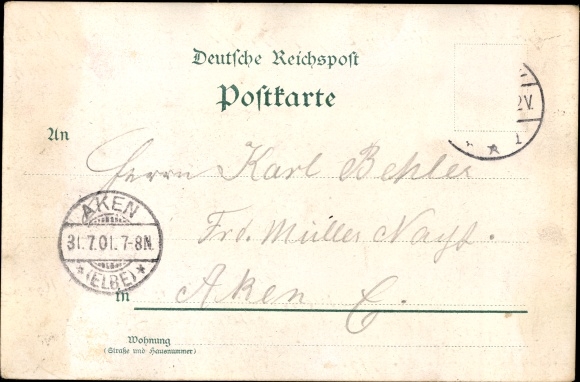 Deutsche Reichspost
Postkarte
2V.
1
An
Herrn Karl Behler
AKEN
31.7.01.7-8N.
*(ELBE)*
Frd. Müller Nachf.
in Aken E.
Wohnung
(Straße und Hausnummer)